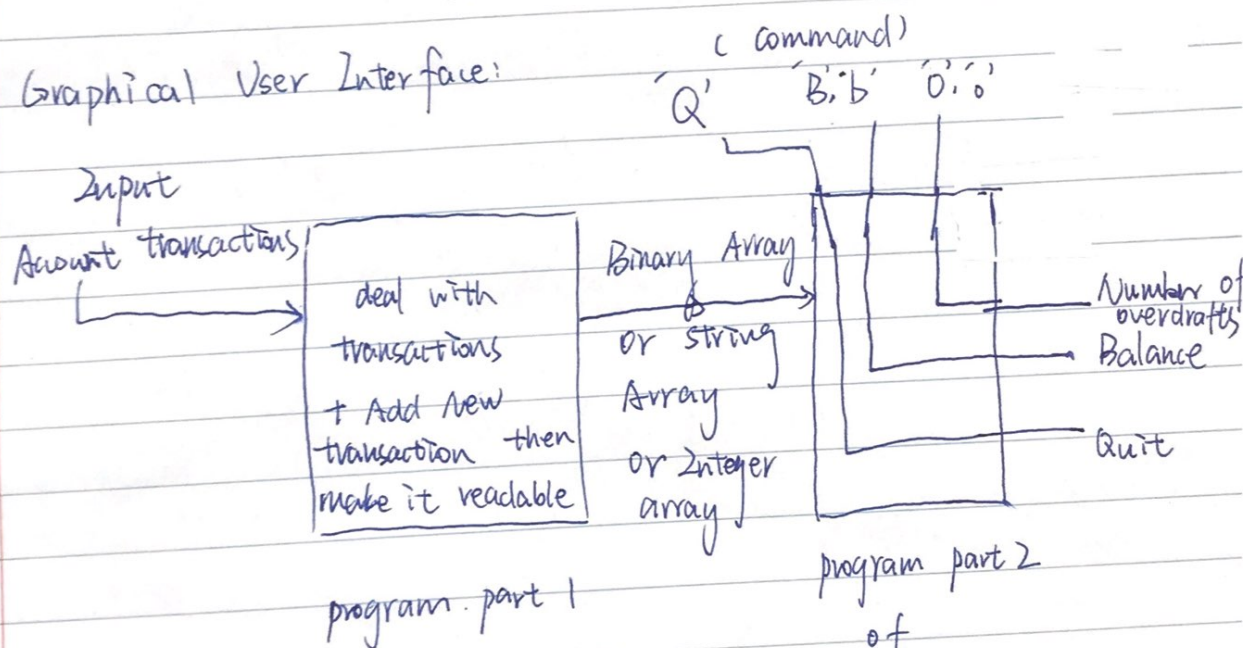 ( command)
Graphical User Interface:
'Q' 'B','b' 'O','o'
Input
Account transactions
deal with
transactions
+ Add New
transaction then
make it readable
Binary Array
or string
Array
or Integer
array
Number of
overdrafts
Balance
Quit
program part 1
program part 2
of